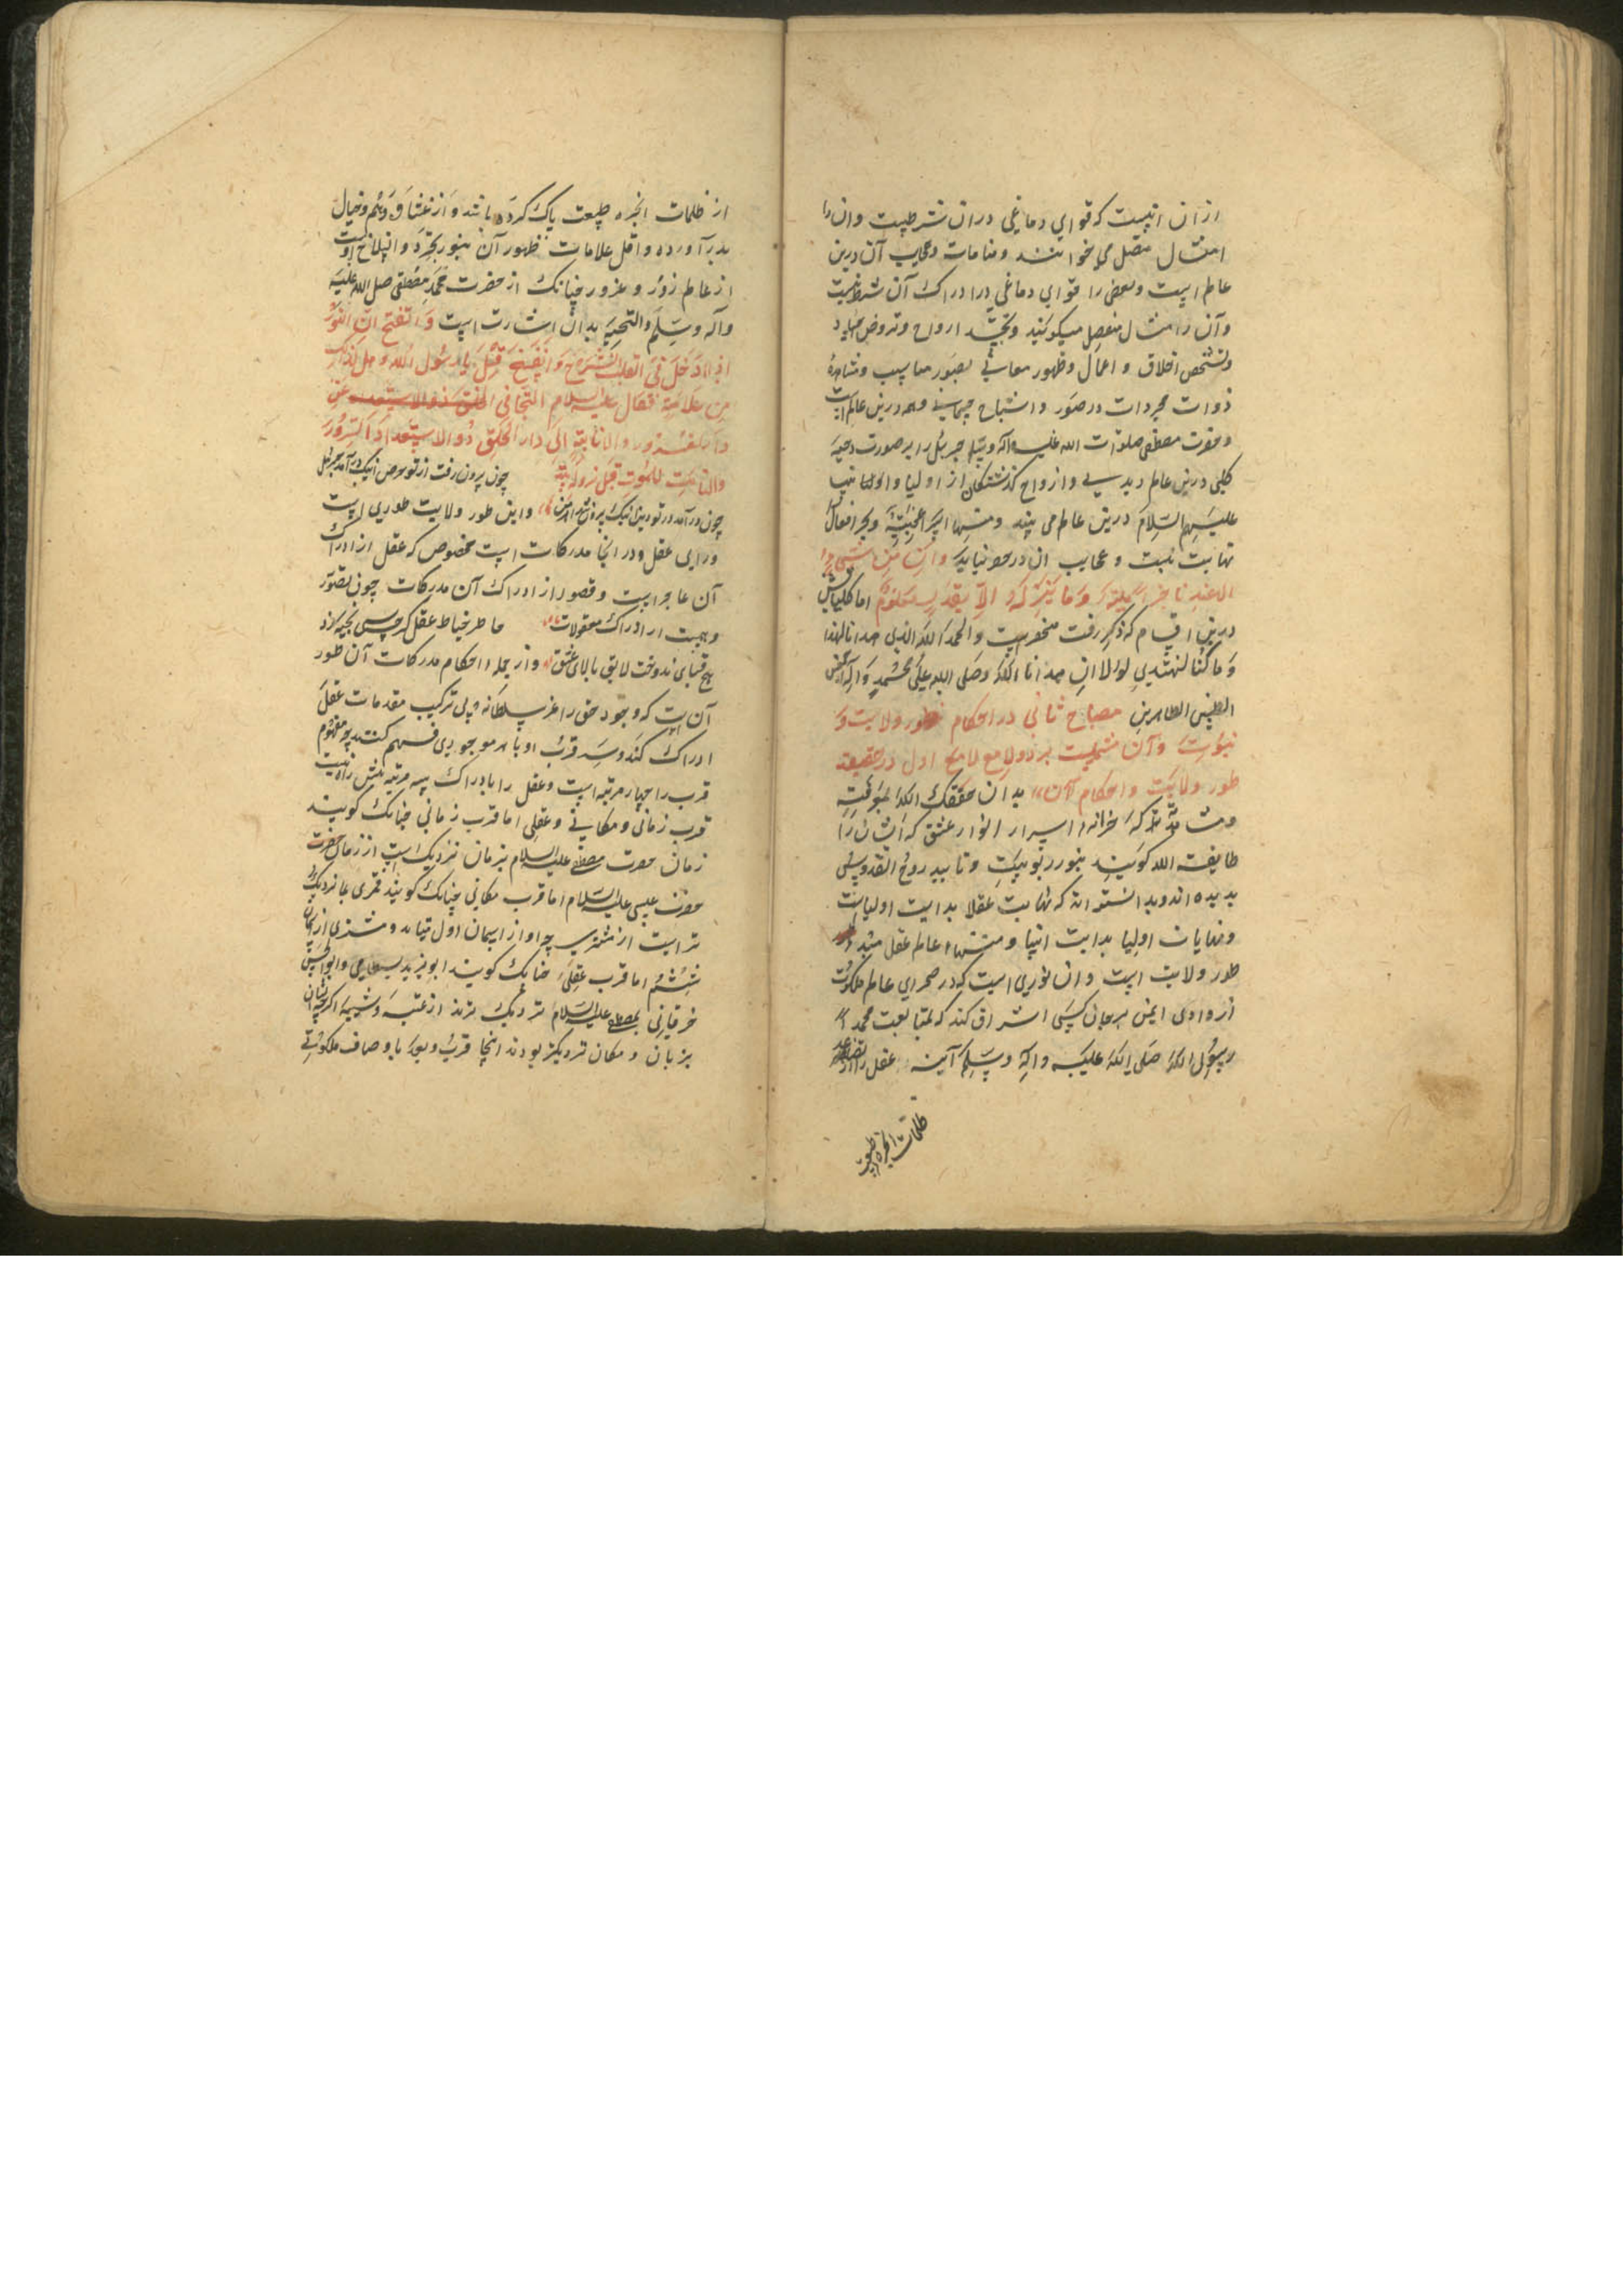 ازان است که قوای دماغی دران شرطست وانرا
امثال متصل می‌خوانند و منامات و عجایب آن درین
عالم است و بعضی را قوای دماغی در ادراک آن شرط نیست
وآن را مثال منفصل میکویند و تجسد ارواح و تروض اجساد
و تشخص اخلاق و اعمال و ظهور معانی بصور مناسب و مشاهدهٔ
ذوات مجردات در صور و اشباح جسمانی همه درین عالم است
و حضرت مصطفی صلوات الله علیه وآله وسلم جبرئل را بر صورت دحیهٔ
کلبی درین عالم دیدی و ارواح کذشتکان از اولیا و انبیا
علیهم السلام درین عالم می بیند
نهایت نیست و عجایب ان در حصر نیاید وان من شیء
الا عندنا خزائنه وما ننزله الا بقدر معلوم اما کلیاتش
درین اقسام که ذکر رفت منحصرست والحمد لله الذی هدانا لهذا
وما کنا لنهتدی لولا ان هدانا الله وصلی الله علی محمد وآله
الطیبین الطاهرین مصباح ثانی در احکام طور ولایت و
نبوت وآن مشتملست بر دو لامع لامع اول در حقیقة
طور ولایت و احکام آن بدان حققک الله بمعرفته
و مشاهدته که خزانهٔ اسرار انوار عشق که ایشان را
طایفة الله کویند بنور ربوبیت و تایید روح القدوسی
بدیده اند و بدانسته اند که نهایت عقلا بدایت اولیاست
و نهایات اولیا بدایت انبیا و منتهاء عالم عقل مبداء
طور ولایت است و ان نوری است که در صحرای عالم ملکوت
از وادی ایمن بر جان کسی اشراق کند که بمتابعت محمد
رسول الله صلی الله علیه وآله وسلم آینه عقل را از
ظلمات ابخره طبیعت
از ظلمات ابخره طبیعت پاک کرده باشد و از وهم و خیال
بدر آورده و اقل علامات ظهور آن نور تجرد و انسلاخ اوست
از عالم زور و غرور چنانک از حضرت محمد مصطفی صلی الله علیه
وآله وسلم والتحیه بدان اشارت است ان النور
اذا دخل فی القلب انشرح وانفسح قیل یا رسول الله وهل لذلک
من علامة فقال علیه السلام التجافی عن
دار الغرور والانابة الی دار الخلق ذو الاستعداد السرور
والتاهب للموت قبل نزوله چون برون رفت از تو حرص انیک درآمد جبرئل
چون درآمد در تو دین انیک برون شد اهرمن واین طور ولایت طوری است
ورای عقل و در انجا مدرکات است مخصوص که عقل از ادراک
آن عاجر است و قصور از ادراک آن مدرکات چون تصور
وهمست از ادراک معقولات خاطر خیاط عقل کرچه بسی بخیه زد
هیچ قبای ندوخت لایق بالای عشق و از جمله احکام مدرکات آن طور
آن است که وجود حق را عز سلطانه بی ترکیب مقدمات عقل
ادراک کند و سر قرب او با هر موجودی فهم کند چه مفهوم
قرب را چهار مرتبه است و عقل را بادراک سه مرتبه بیش راه نیست
قرب زمانی و مکانی و عقلی اما قرب زمانی چنانک کویند
زمان حضرت مصطفی علیه السلام بزمان نزدیک است از زمان حضرت
حضرت عیسی علیه السلام اما قرب مکانی چنانک کویند قمری بما نزدیک
تر است از مشتری چه او از اسمان اول میتابد و مشتری از اسمان
ششم اما قرب عقلی چنانک کویند ابو یزید بسطامی و ابوالحسن
خرقانی بمصطفی علیه السلام نزدیک ترند از عتبه و شیبه اکرچه ایشان
بزمان و مکان نزدیکتر بودند انجا قرب و بعد باوصاف ملکوتی